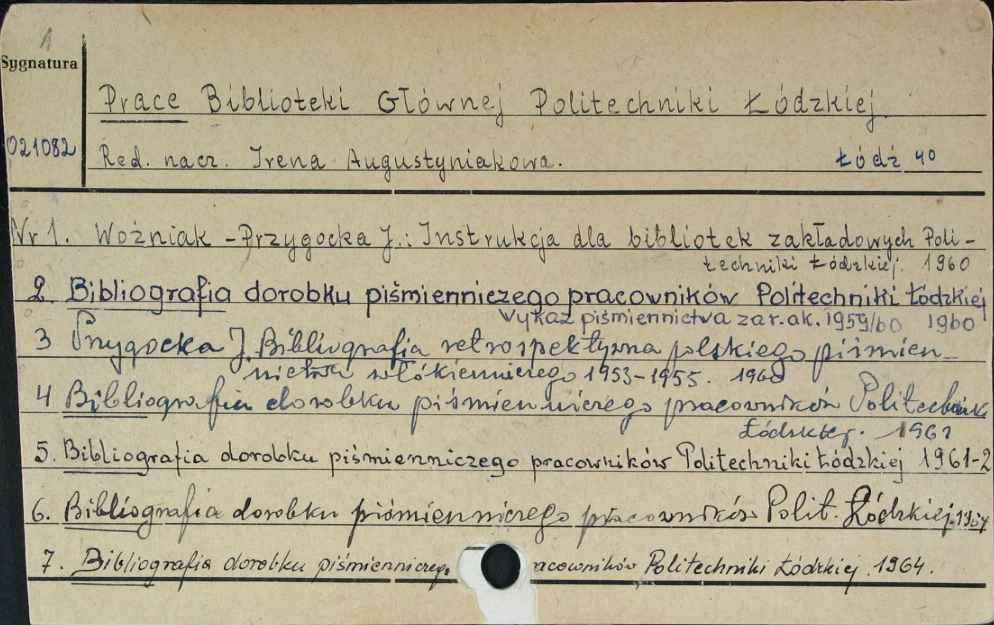 1
Sygnatura
Prace Biblioteki Głównej Politechniki Łódzkiej.
021082 Red. nacz. Irena Augustyniakowa. Łódź 4°
Nr 1. Woźniak-Przygocka J.: Instrukcja dla bibliotek zakładowych Poli-
techniki Łódzkiej. 1960
2 Bibliografia dorobku piśmienniczego pracowników Politechniki Łódzkiej
Wykaz piśmiennictwa za r. ak. 1959/60 1960
3 Przygocka J. Bibliografia retrospektywna polskiego piśmien-
nictwa włókienniczego 1953-1955. 1960
4 Bibliografia dorobku piśmienniczego pracowników Politechnik
Łódzkiej. 1961
5. Bibliografia dorobku piśmienniczego pracowników Politechniki Łódzkiej 1961-2
6. Bibliografia dorobku piśmienniczego pracowników Polit. Łódzkiej.
7. Bibliografia dorobku piśmienniczego racowników Politechniki Łódzkiej 1964.